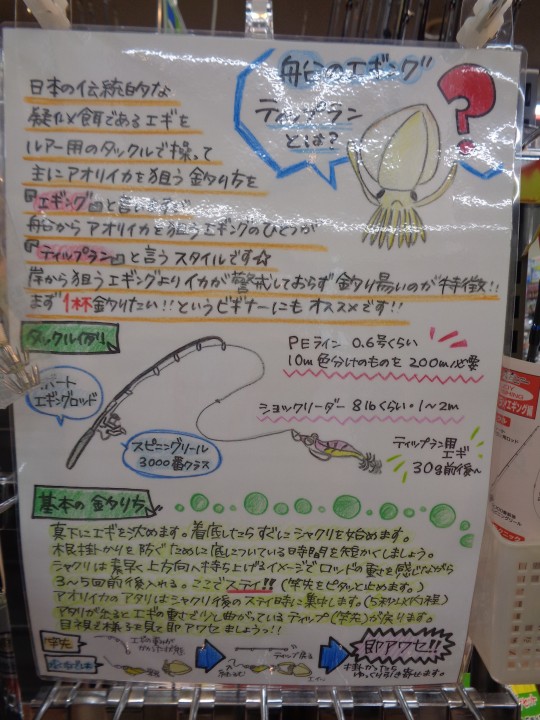 船のエギング
ティップラン
とは?
?
日本の伝統的な
疑似餌であるエギを
ルアー用のタックルで操って
主にアオリイカを狙う釣り方を
『エギング』と言いますが
船からアオリイカを狙うエギングのひとつが
『ティップラン』と言うスタイルです☆
岸から狙うエギングよりイカが警戒しておらず釣り易いのが特徴!!
まず1杯釣りたい!!というビギナーにもオススメです!!
タックル
PEライン 0.6号くらい
10m色分けのものを 200m必要
ボート
エギングロッド
スピニングリール
3000番クラス
ショックリーダー 8lbくらい・1~2m
ティップラン用
エギ
30g前後~
基本の釣り方
真下にエギを沈めます。着底したらすぐにシャクリを始めます。
根掛かりを防ぐために底についている時間を短かくしましょう。
シャクリは素早く上方向へ持ち上げるイメージでロッドの重さを感じながら
3~5回前後入れる。ここでステイ!!(竿先をピタッと止めます。)
アオリイカのアタリはシャクリ後のステイ時に集中します。(5秒以内程)
アタリが出るとエギの重さで少し曲がっているティップ(竿先)が戻ります。
目視で様子を見て即アワセましょうっ!!
竿先
ティップ戻る
即アワセ!!
掛かったら
ゆっくり引き寄せます。